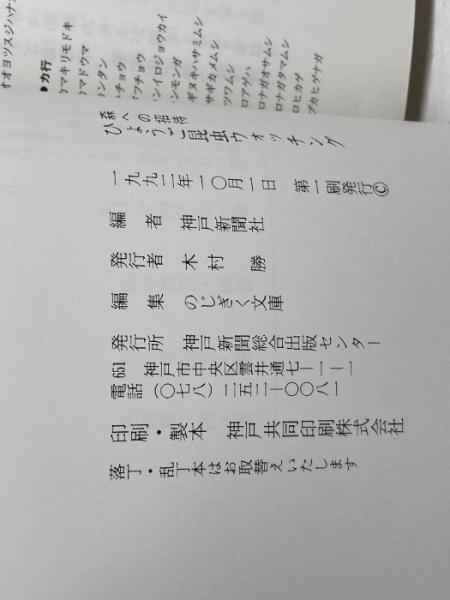 森への招待
ひょうご昆虫ウォッチング
一九九二年一〇月一日　第一刷発行Ⓒ
編者　神戸新聞社
発行者　木村　勝
編集　のじぎく文庫
発行所　神戸新聞総合出版センター
651　神戸市中央区雲井通七―一―一
電話（〇七八）二五二―〇〇八一
印刷・製本　神戸共同印刷株式会社
落丁・乱丁本はお取替えいたします
オオヨツスジハナ
カ行
マキリモドキ
マドウマ
ンタン
チョウ
フチョウ
ンイロジョウカイ
ンモンガ
ギヌキハサミムシ
サギカメムシ
ツワムシ
ロアゲハ
ロナガオサムシ
ロナガタマムシ
ロヒカゲ